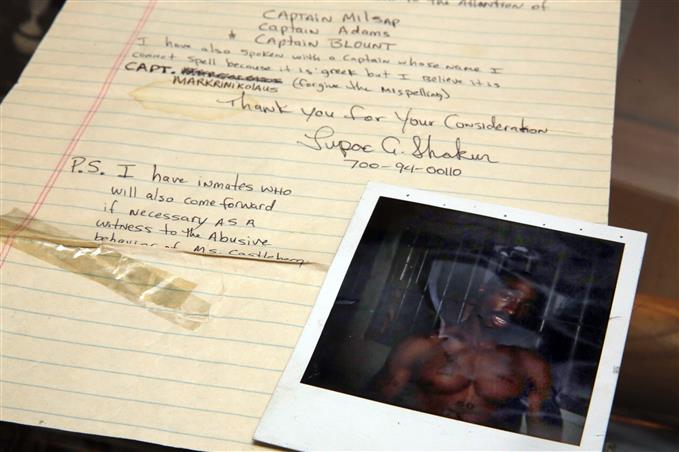 to the Attention of
CAPTAIN MILSAP
Captain Adams
* CAPTAIN BLOUNT
I have also spoken with a captain whose name I
cannot spell because it is greek but I believe it is
CAPT.
MARKRINIKOLAUS (forgive the mispelling)
Thank You for Your Consideration
Tupac A. Shakur
700-94-00110
P.S. I have inmates who
will also come forward
if necessary AS A
witness to the Abusive
behavior of Ms. Castleberry